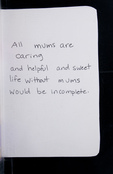 All mums are
caring
and helpful and sweet
life without mums
would be incomplete.